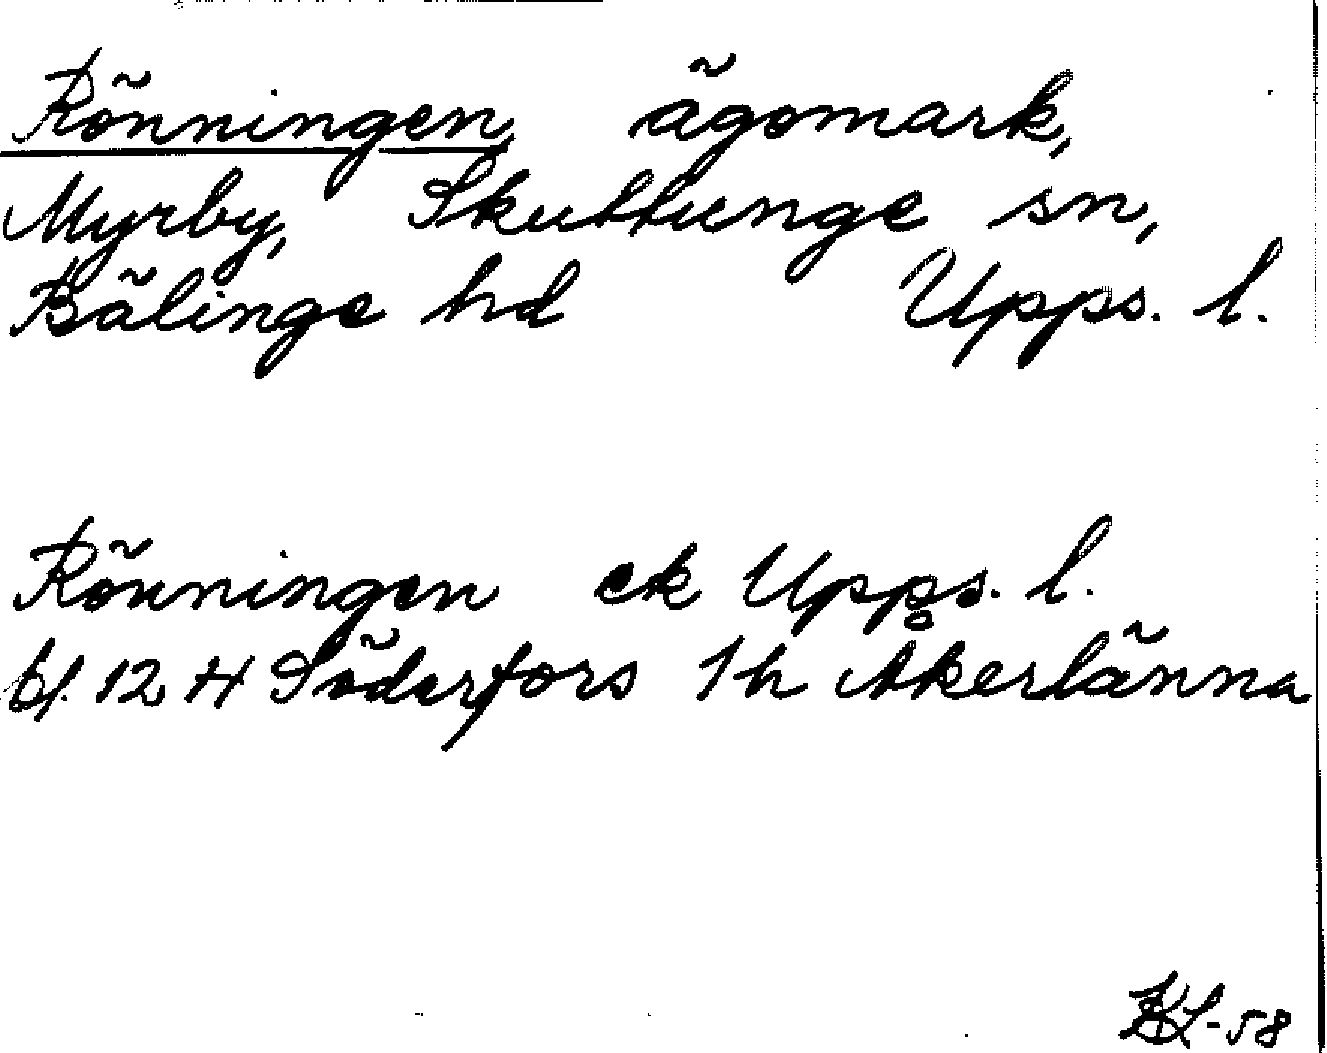 Rönningen, ägomark,
Myrby, Skuttunge sn,
Bälinge hd Upps. l.
Rönningen ek Upps. l.
bl. 12 H Söderfors 1h Åkerlänna
-58